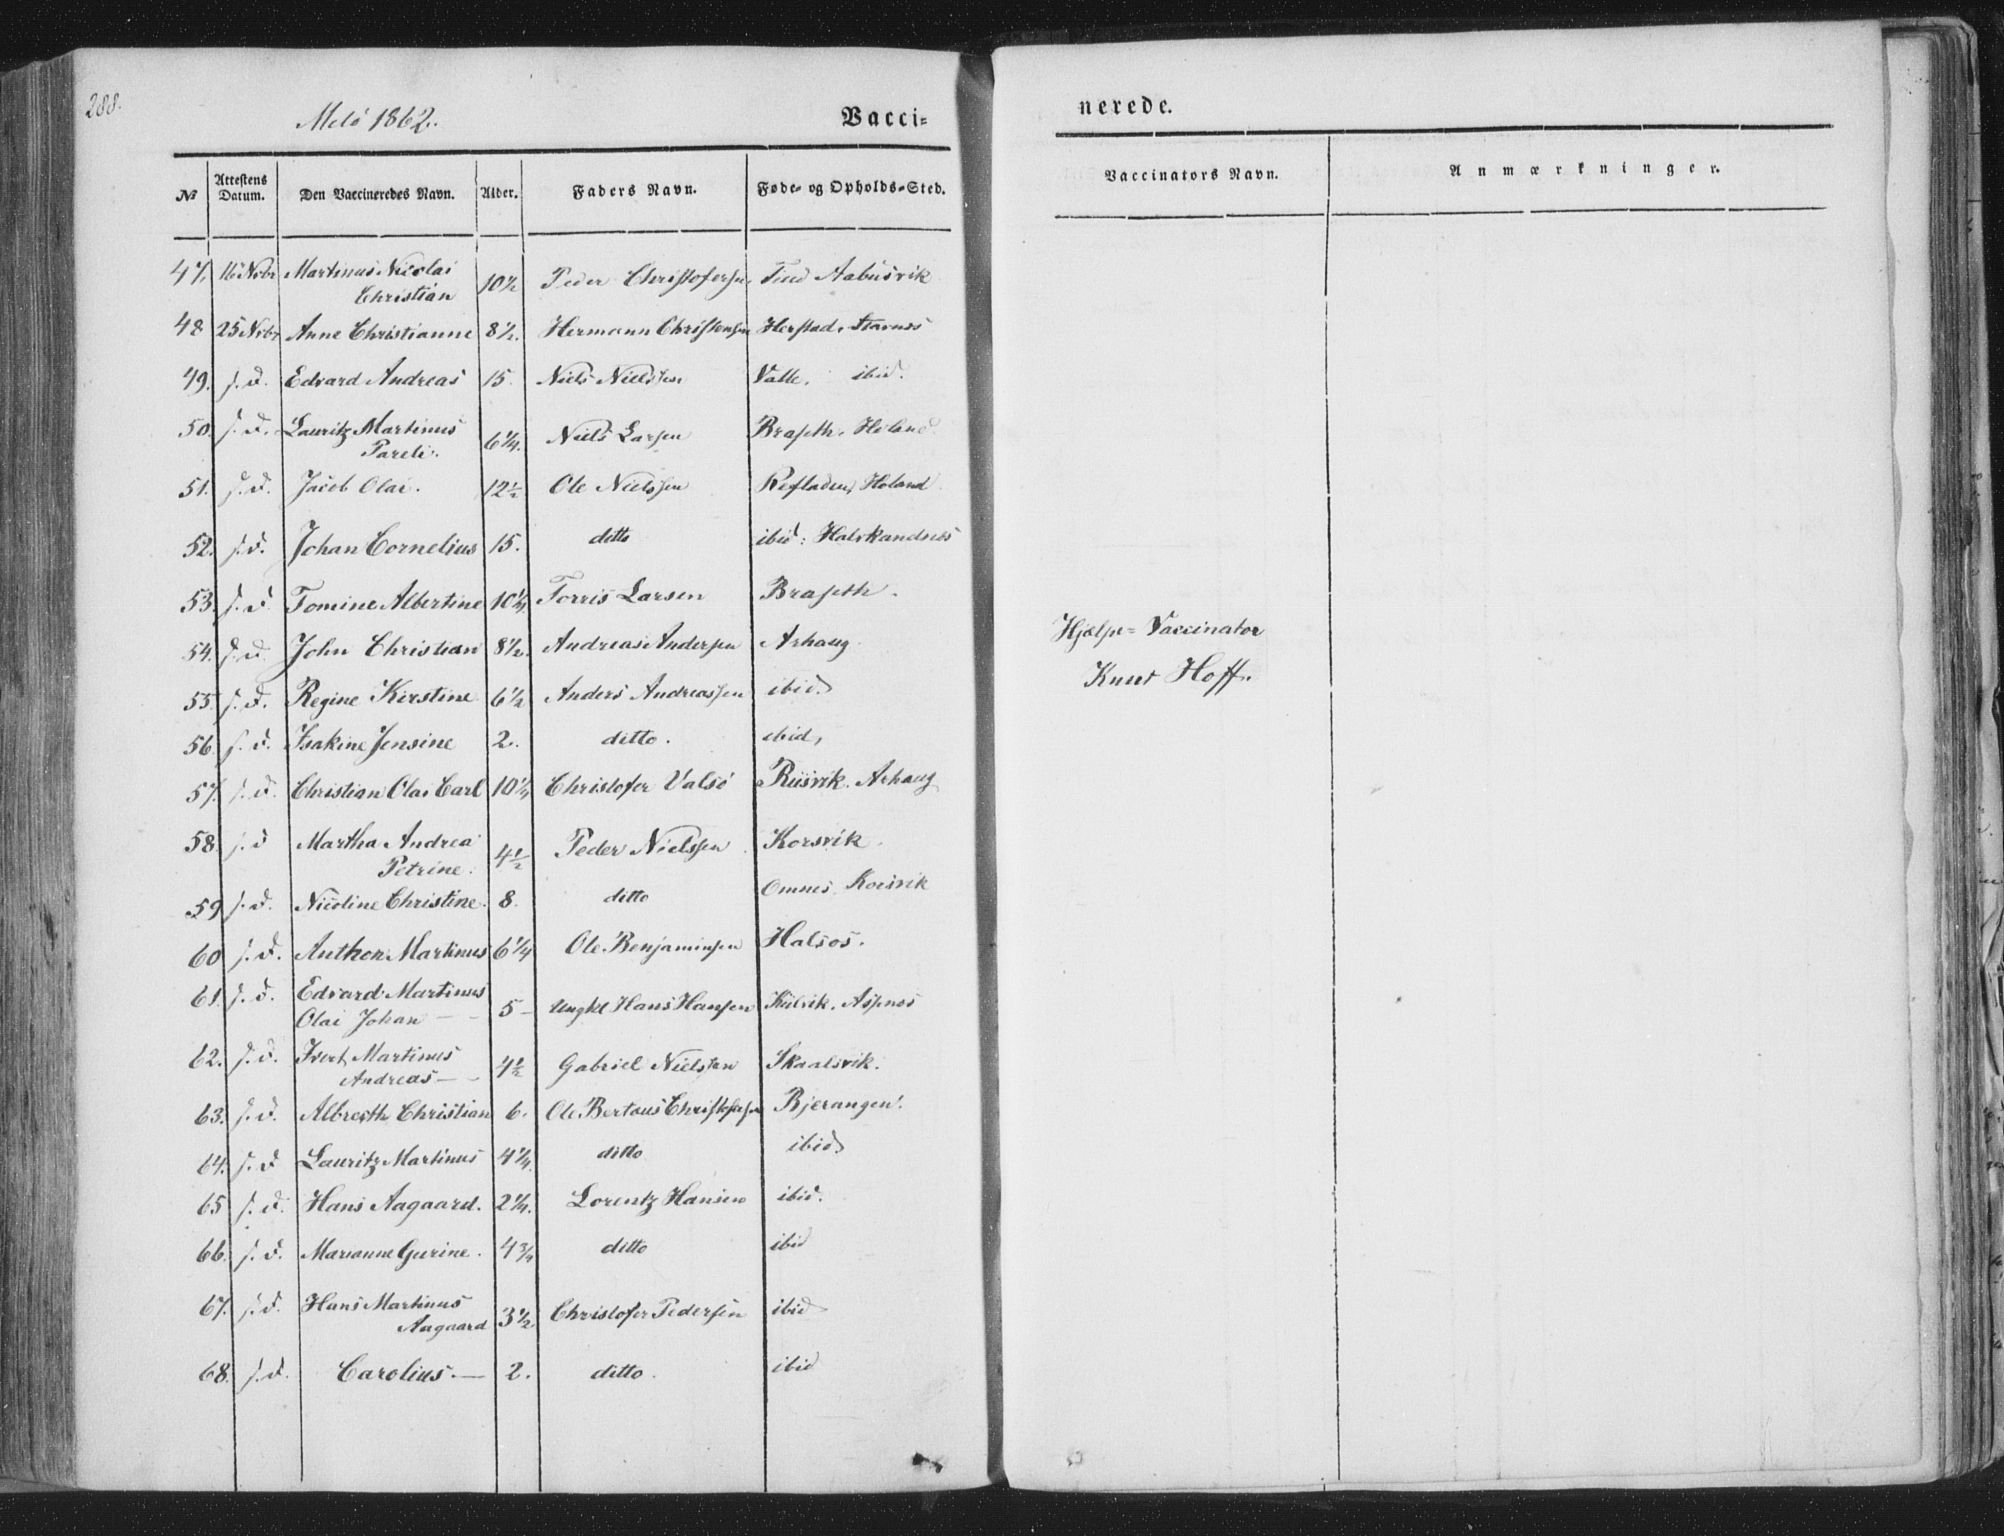 288.
Melö 1862.
Vacci=
nerede.
№ Attestens Datum. Den Vaccineredes Navn. Alder. Faders Navn. Føde= og Opholds=Sted.
Vaccinators Navn. Anmærkninger.
47. 16 Nvbr Martinus Nicolai
Christian 10½ Peder Christofersen Aabusvik
48 25 Nvbr Anne Christianne 8½. Hermann Christensen Herstad. Stavnes
49. s. d. Edvard Andreas 15. Niels Nielssen Valle. ibid.
50. s. d. Lauritz Martinus
Pareli. 6¼. Niels Larsen Braseth. Holand
51. s. d. Jacob Olai. 12½ Ole Nielssen Holand
52. s. d. Johan Cornelius 15. ditto ibid: Halvkandnes
53. s. d Tomine Albertine 10¼. Torris Larsen Braseth.
54. s. d. John Christian 8½. Andreas Andersen Arhaug
55. s. d. Regine Kirstine 6½ Anders Andreassen ibid.
56. s. d. Isakine Jensine 2. ditto. ibid,
57. s. d. Christian Olai Carl 10¼ Christofer Valsö Riisvik. Arhaug
58. s. d Martha Andrea
Petrine. 4½ Peder Nielssen Korsvik.
59 s. d. Nicoline Christine. 8. ditto Omnes. Korsvik
60 s. d. Anthon Martinus 6¼ Ole Benjaminsen Halsos.
61. s. d. Edvard Martinus
Olai Johan — 5 — Ungkl Hans Hansen Kilvik. Aspnes
62. s. d. Ivert Martinus
Andreas — 4½ Gabriel Nielssen Skaalsvik.
63. s. d. Albrecth Christian 6. Ole Bertaus Christofersen Bjerangen.
64. s. d Lauritz Martinus 4¼. ditto ibid
65 s. d. Hans Aagaard. 2¼. Lorentz Hansen ibid.
66. s. d. Marianne Gurine. 4¾ ditto ibid
67. s. d. Hans Martinus
Aagaard 3½ Christofer Pedersen ibid
68. s. d. Carolius. — 2. ditto. ibid
Hjælpe=Vaccinator
Knut Hoff.